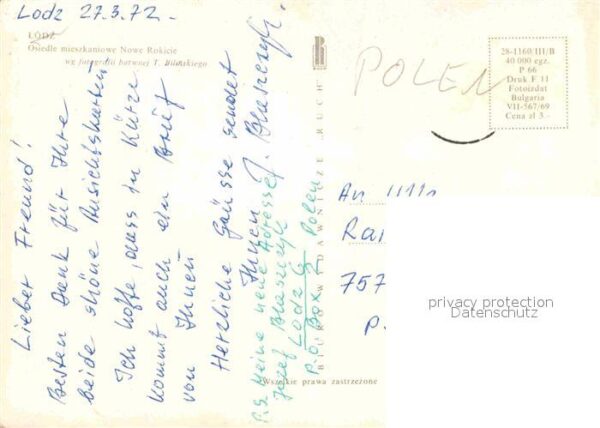 Lodz 27.3.72.-
ŁÓDŹ
Osiedle mieszkaniowe Nowe Rokicie
wg fotografii barwnej T. Bilińskiego
Lieber Freund!
Besten Dank für Ihre
beide shöne Ansichtskarten
Ich hoffe, dass in Kürze
kommt auch ein Brief
von Ihnen
Herzliche Grüsse sendet
Ihnen J. Blaszczyk.
P.S. Meine neue Adresse:
Józef Blaszczyk
Lodz 9
P.O. Box 2 Polen
BIURO WYDAWNICZE RUCH
Wszelkie prawa zastrzeżone
POLEN
28-1160/III/B
40 000 egz.
P 66
Druk F 11
Fotoizdat
Bulgaria
VII-567/69
Cena zł 3.-
An
Rai
757
P.
privacy protection
Datenschutz